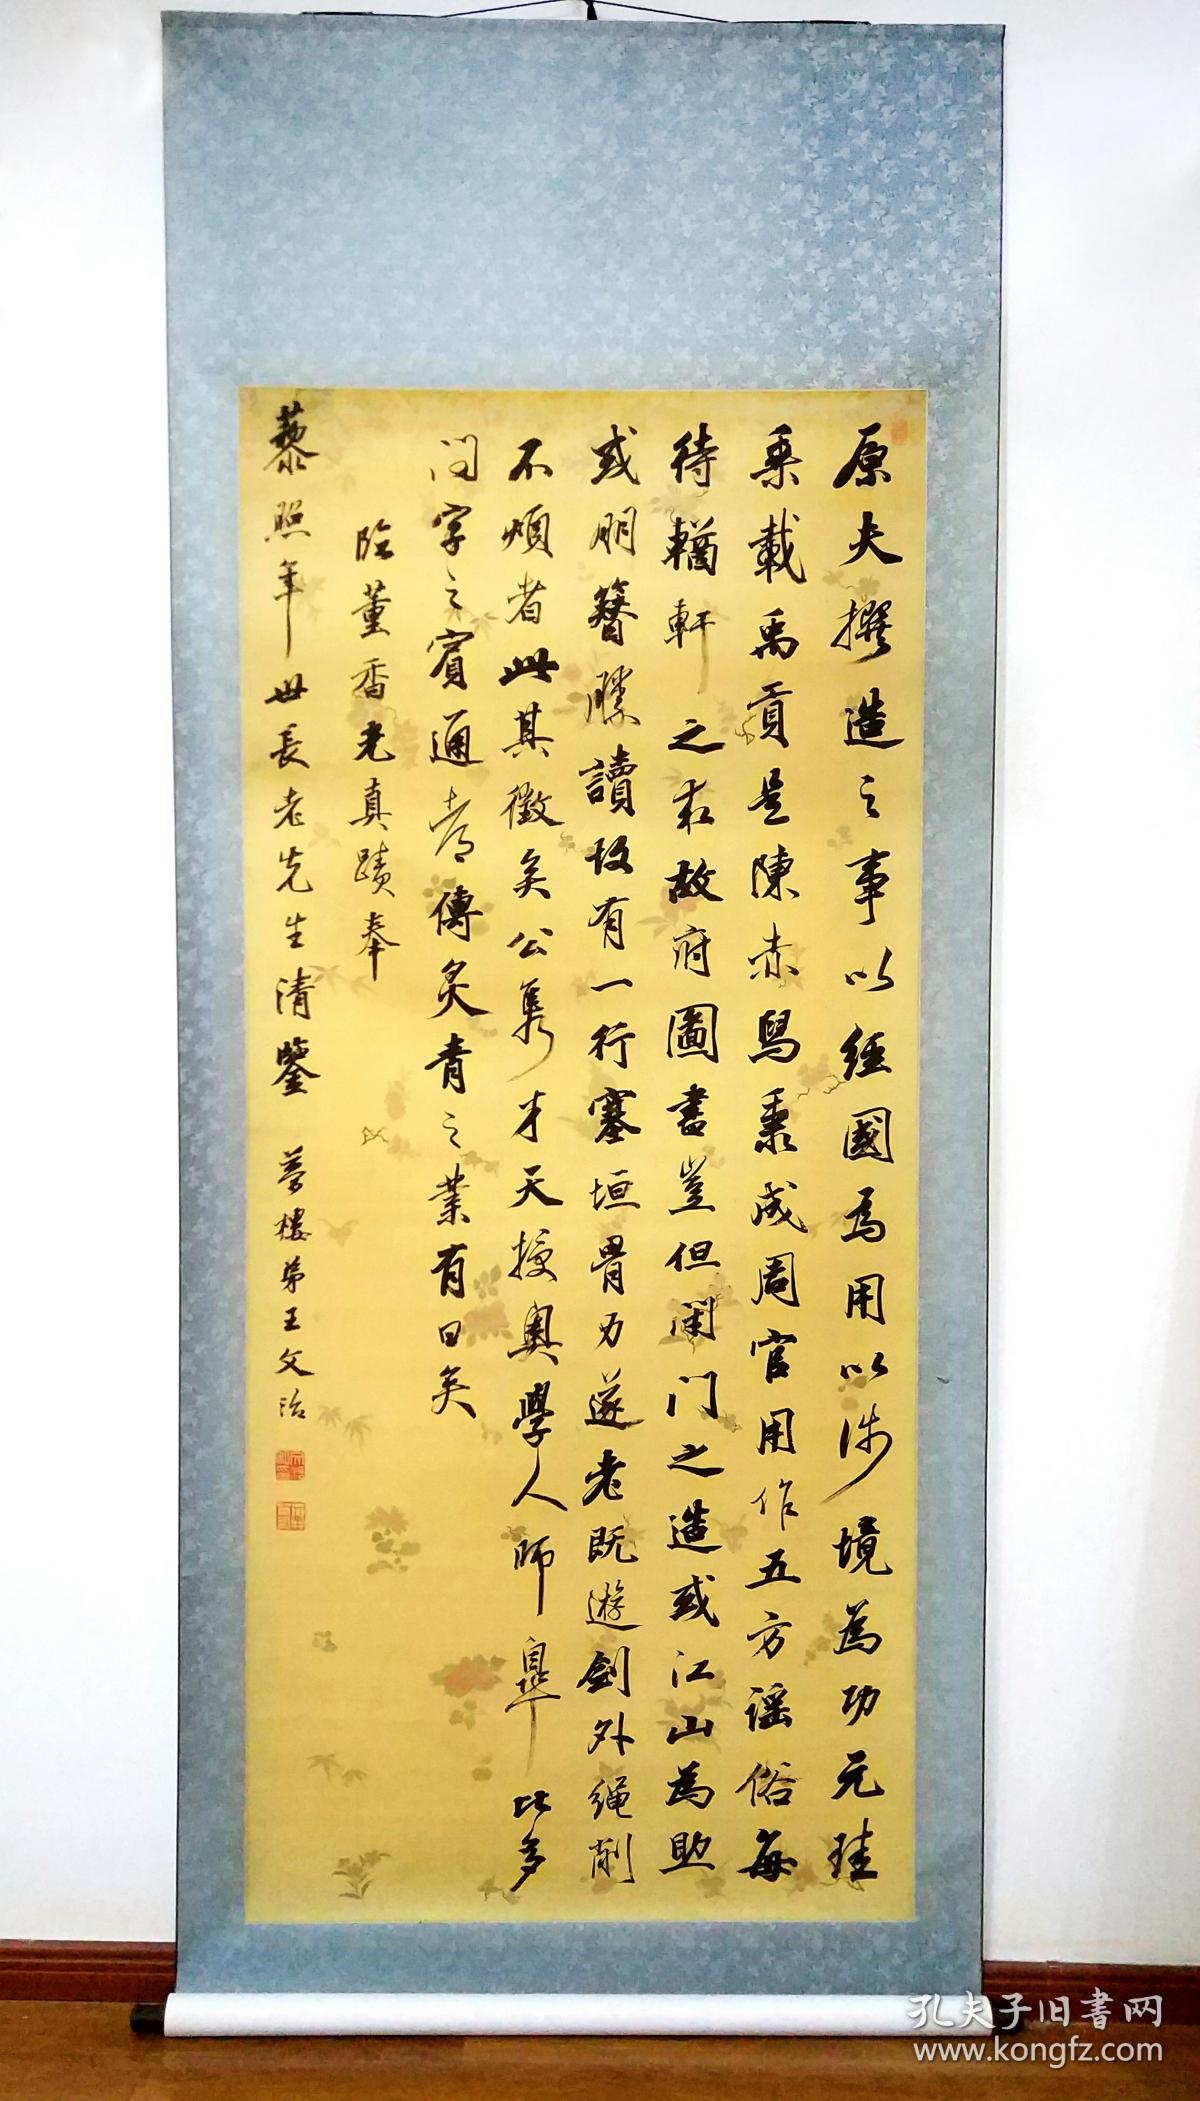 原夫撰造之事以經國為用以涉境為功元珪
乘載禹貢是陳赤舄秉成周官用作五方謡俗每
待輶軒之求故府圖書豈但閉門之造或江山為助
或朋簪勝讀故有一行塞垣胥力遂老既遊劍外繩削
不煩者此其徵矣公雋才天授奧學人師皋比多
問字之賓通都傳炙青之業有日矣
臨董香光真蹟奉
藜照年世長老先生清鑒 夢樓弟王文治
孔夫子旧書网
www.kongfz.com